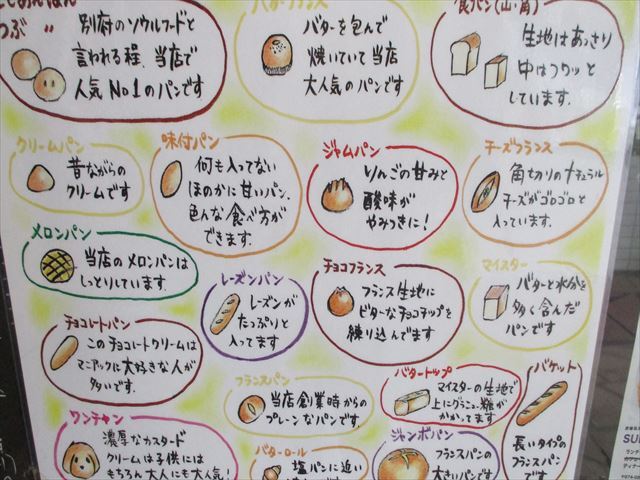 つぶ 〃
別府のソウルフードと
言われる程、当店で
人気No1のパンです
バターフランス
バターを包んで
焼いていて当店
大人気のパンです
食パン(山・角)
生地はあっさり
中はフワッと
しています.
クリームパン
昔ながらの
クリームです
味付パン
何も入ってない
ほのかに甘いパン.
色んな食べ方が
できます.
ジャムパン
りんごの甘みと
酸味が
やみつきに!
チーズフランス
角切りのナチュラル
チーズがゴロゴロと
入っています.
メロンパン
当店のメロンパンは
しっとりしています.
レーズンパン
レーズンが
たっぷりと
入ってます
チョコフランス
フランス生地に
ビターなチョコチップを
練り込んでます
マイスター
バターと水分を
多く含んだ
パンです
チョコレートパン
このチョコレートクリームは
マニアックに大好きな人が
多いです.
フランスパン
当店創業時からの
プレーンなパンです.
バタートップ
マイスターの生地で
上にグラニュー糖が
かかってます
バケット
長いタイプの
フランスパン
です
ワンチャン
濃厚なカスタード
クリームは子供には
もちろん大人にも大人気!
バターロール
塩パンに近い
ジャンボパン
フランスパンの
大きいパンです